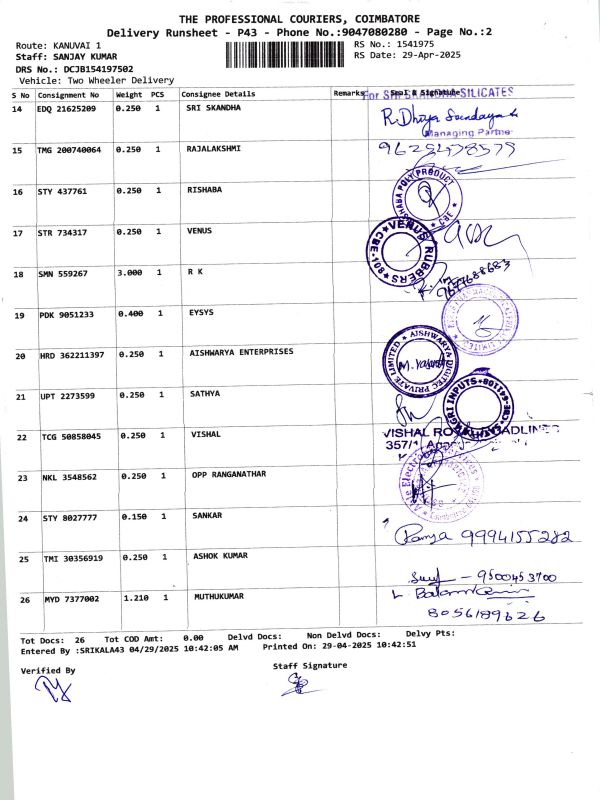 THE PROFESSIONAL COURIERS, COIMBATORE
Delivery Runsheet - P43 - Phone No.:9047080280 - Page No.:2
Route: KANUVAI 1
RS No.: 1541975
Staff: SANJAY KUMAR
RS Date: 29-Apr-2025
DRS No.: DCJB154197502
Vehicle: Two Wheeler Delivery
S No Consignment No Weight PCS Consignee Details Remarks Seal & Signature
For SRI SKANDHA SILICATES
14 EDQ 21625209 0.250 1 SRI SKANDHA
Managing Partner
15 TMG 200740064 0.250 1 RAJALAKSHMI
16 STY 437761 0.250 1 RISHABA
POLY PRODUCT
CBE
17 STR 734317 0.250 1 VENUS
VENUS RUBBERS
18 SMN 559267 3.000 1 R K
19 PDK 9051233 0.400 1 EYSYS
20 HRD 362211397 0.250 1 AISHWARYA ENTERPRISES
AISHWARYA DIGITEC PRIVATE LIMITED
21 UPT 2273599 0.250 1 SATHYA
AGRI INPUTS
22 TCG 50858045 0.250 1 VISHAL
VISHAL
357/1
23 NKL 3548562 0.250 1 OPP RANGANATHAR
24 STY 8027777 0.150 1 SANKAR
Ramya 9994155282
25 TMI 30356919 0.250 1 ASHOK KUMAR
9500453700
26 MYD 7377002 1.210 1 MUTHUKUMAR
8056189626
Tot Docs: 26 Tot COD Amt: 0.00 Delvd Docs: Non Delvd Docs: Delvy Pts:
Entered By :SRIKALA43 04/29/2025 10:42:05 AM Printed On: 29-04-2025 10:42:51
Verified By
Staff Signature